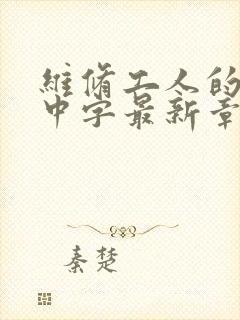 維脩工人的
中字最新章
秦楚